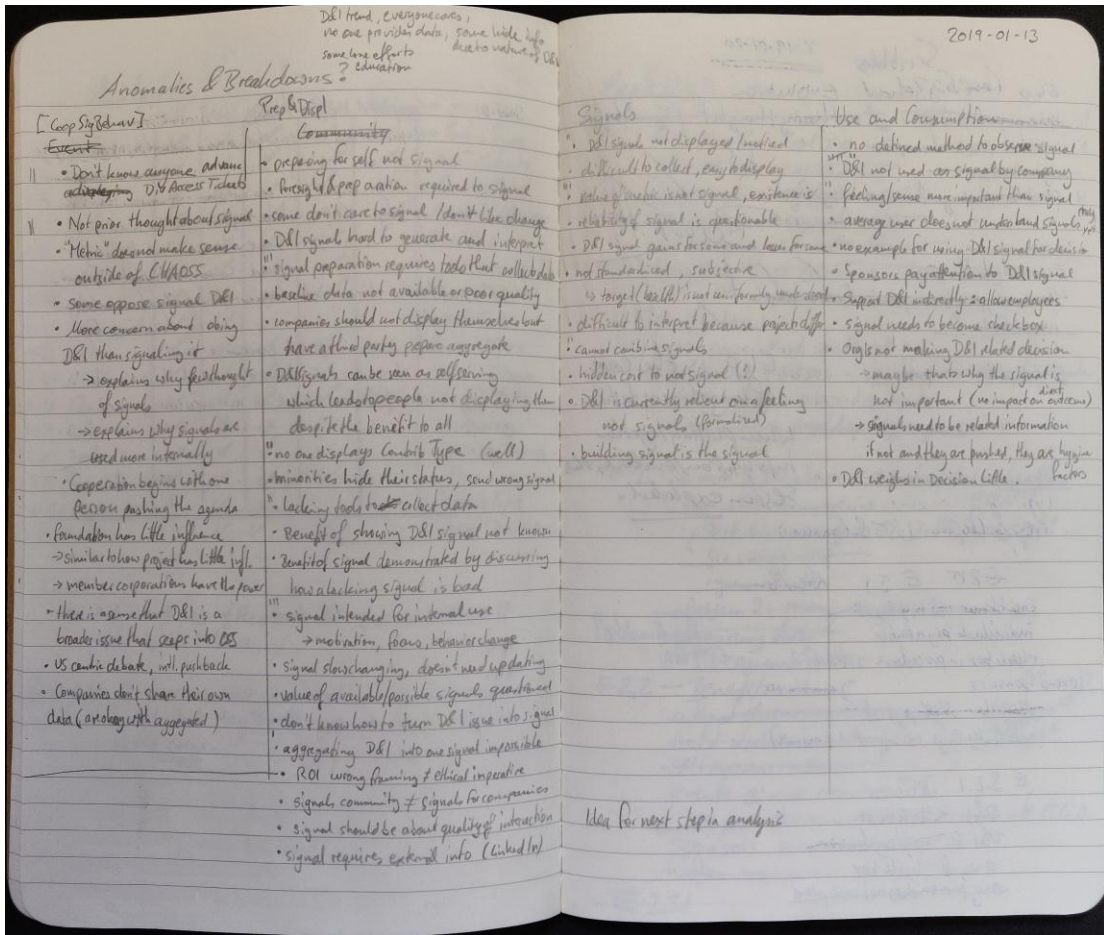 D&I trend, everyone cares,
no one provides data, some hide info
due to nature of D&I
some lone efforts
? education
Anomalies & Breakdowns?
[CoopSigBehav]
Event
• Don't know anyone advance
displaying D&I Access Tickets
• Not prior thought about signal
• "Metric" does not make sense
outside of CHAOSS
• Some oppose signal D&I
• More concern about doing
D&I than signaling it
→ explains why few thought
of signals
→ explains why signals are
used more internally
• Cooperation begins with one
person pushing the agenda
• foundation has little influence
→ similar to how project has little infl.
→ member corporations have the power
• there is a sense that D&I is a
broader issue that seeps into OSS
• US centric debate, intl. pushback
• Companies don't share their own
data (are okay with aggregated)
Prep & Displ
Community
• preparing for self not signal
• Foresight & preparation required to signal
• some don't care to signal / don't like change
• D&I signals hard to generate and interpret
• signal preparation requires tools that collect data
• baseline data not available or poor quality
• companies should not display themselves but
have a third party prepare aggregate
• D&I signals can be seen as self serving
which leads to people not displaying them
despite the benefit to all
• no one displays Contrib Type (well)
• minorities hide their status, send wrong signal
• lacking tools to collect data
• Benefit of showing D&I signal not known
• Benefit of signal demonstrated by discussing
how a lacking signal is bad
• signal intended for internal use
→ motivation, focus, behavior change
• signal slow changing, doesn't need updating
• value of available/possible signals questioned
• don't know how to turn D&I issue into signal
• aggregating D&I into one signal impossible
• ROI wrong framing ≠ ethical imperative
• signals community ≠ signals for companies
• signal should be about quality of interaction
• signal requires external info (LinkedIn)
2019-01-13
Signals
• D&I signals not displayed / noticed
• difficult to collect, easy to display
• value of metric is not signal, existence is
• reliability of signal is questionable
• D&I signal gains for some and loses for some
• not standardized, subjective
↳ target (health) is not uniformly understood
• difficult to interpret because projects differ
• cannot combine signals
• hidden cost to not signal (?)
• D&I is currently relient on a feeling
not signals (formalized)
• building signal is the signal
Idea for next step in analysis
Use and Consumption
• no defined method to observe signal
• D&I not used as signal by company
• feeling/sense more important than signal
• average user does not understand signals
• no example for using D&I signal for decision
• Sponsors pay attention to D&I signal
• Support D&I indirectly: allow employees
• signal needs to become checkbox
• Org is not making D&I related decision
→ maybe that's why the signal is
not important (no impact on direct outcome)
→ signals need to be related information
if not and they are pushed, they are hygiene
factors
• D&I weighs in Decision Little.